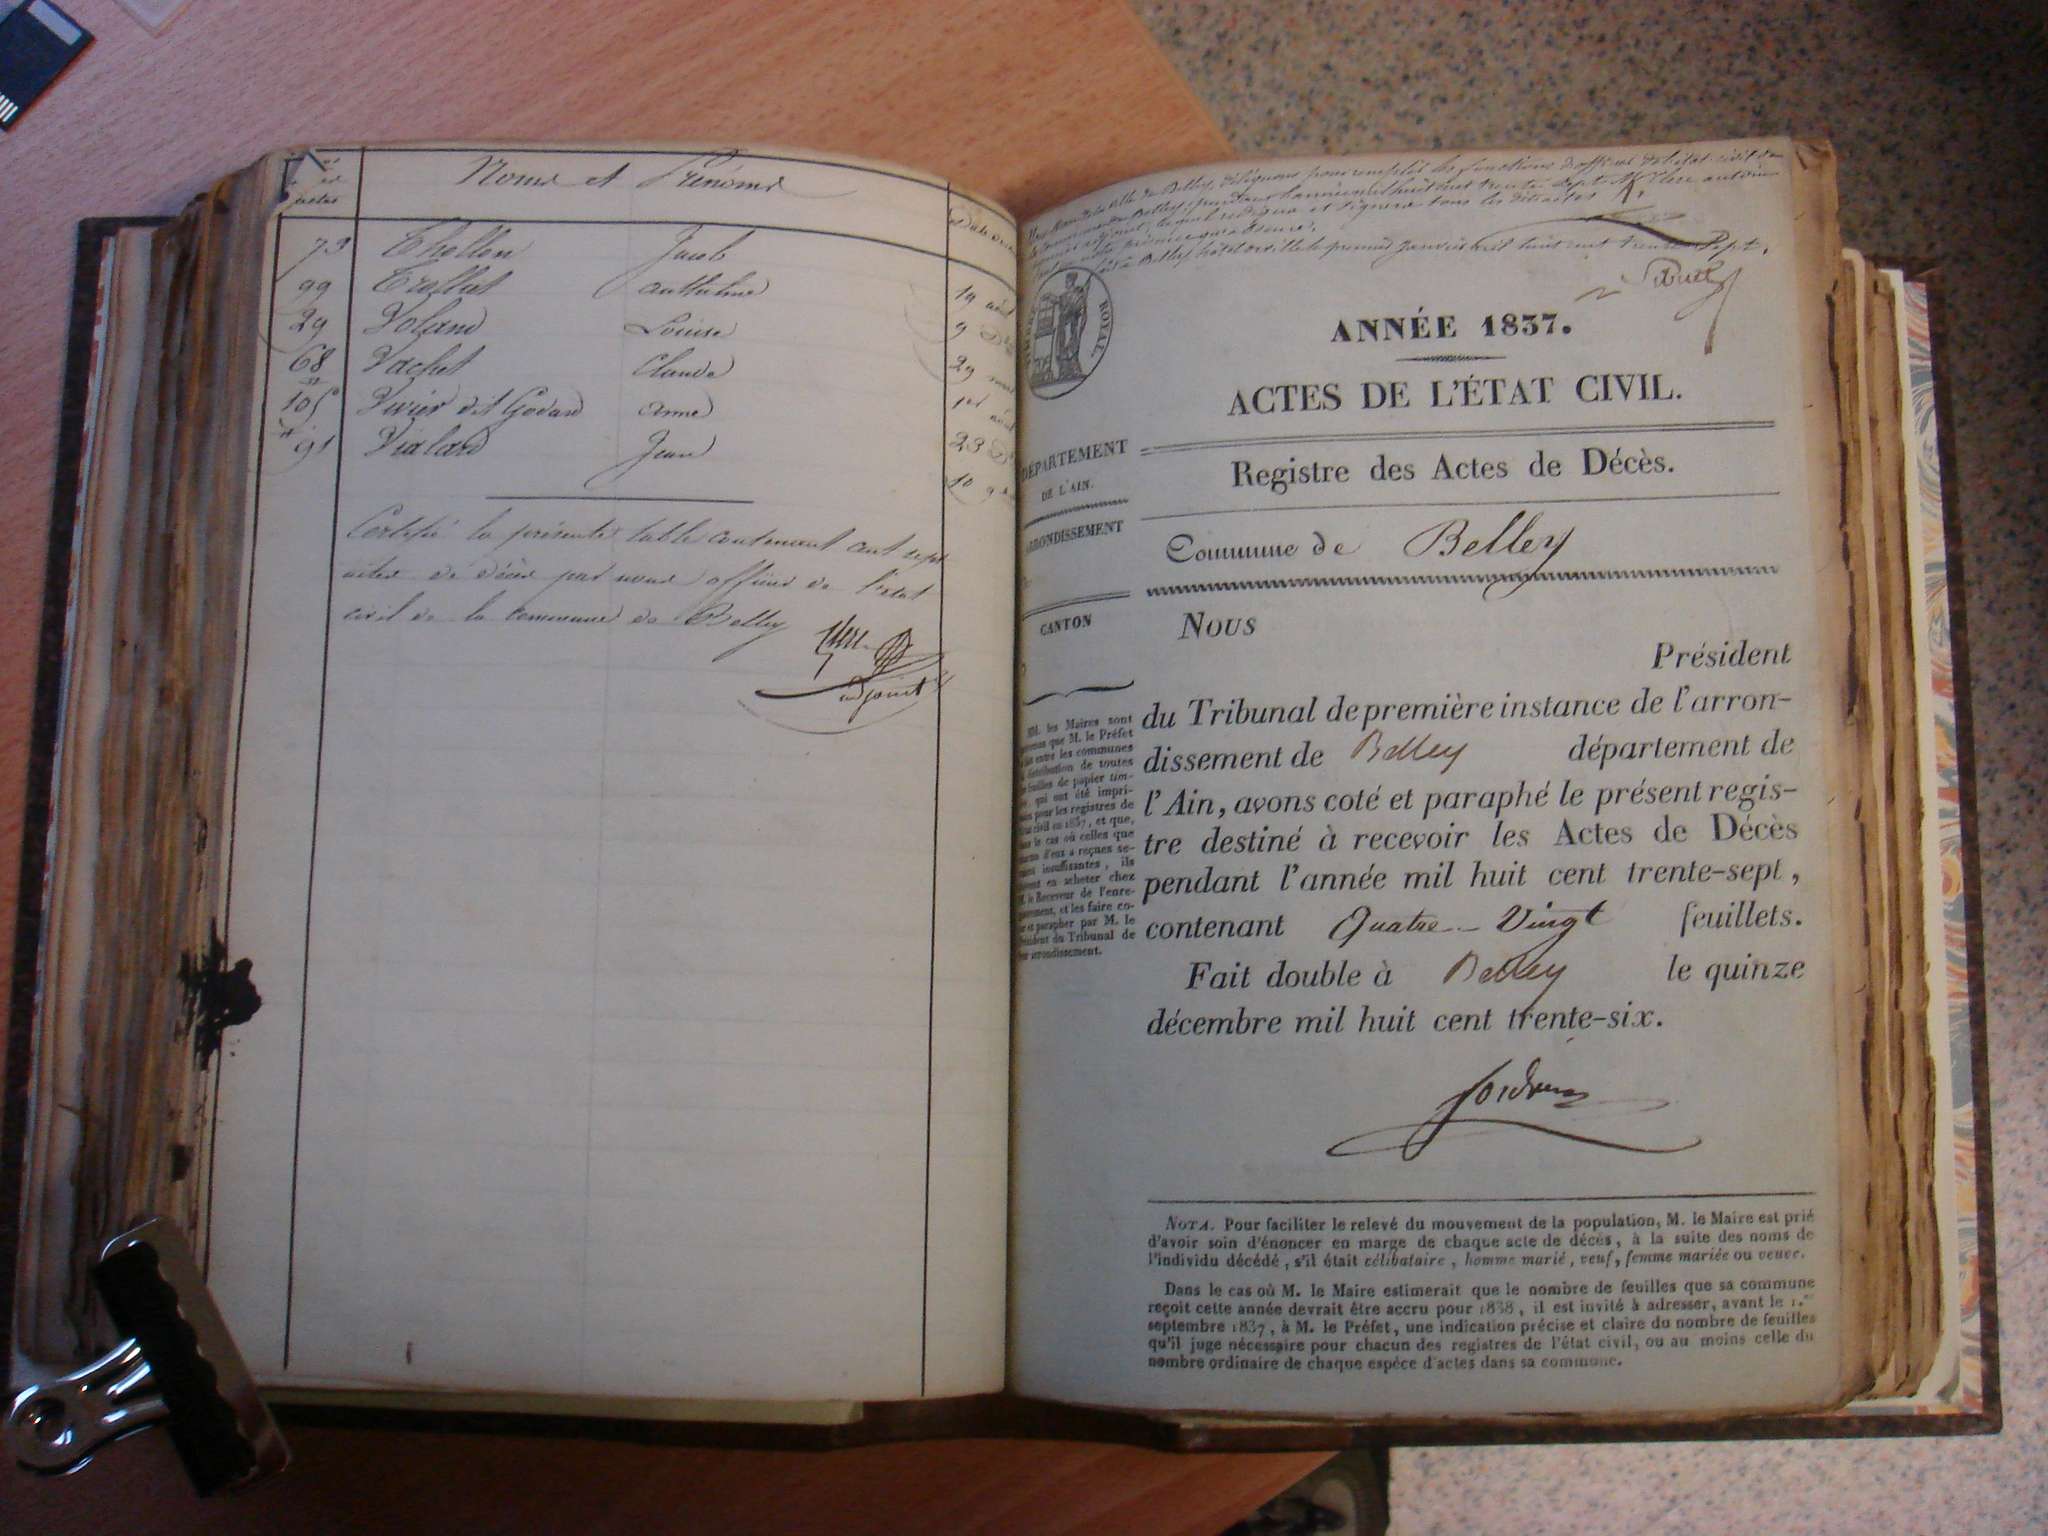 Noms et Prénoms
73 Thollon Jacob
99 Trollet anthelme 19 août
29 Voland Louise 9
68 Vachet Claude 29
105 Vivier dit Godard anne 1er août
91 Vialard Jean 23
10
Certifié la présente table contenant cent sept
actes de décès par nous officier de l'état
civil de la commune de Belley
adjoint
de la ville de Belley, déléguons pour remplir les fonctions d'officier de l'état civil de
mil huit cent trente sept M.
et signera tous les
fait à Belley, hôtel de ville le premier janvier mil huit cent trente sept.
ROYAL.
ANNÉE 1837.
ACTES DE L'ÉTAT CIVIL.
DÉPARTEMENT
DE L'AIN.
Registre des Actes de Décès.
ARRONDISSEMENT
Commune de Belley
CANTON
Nous
Président
du Tribunal de première instance de l'arron-
dissement de Belley département de
l'Ain, avons coté et paraphé le présent regis-
tre destiné à recevoir les Actes de Décès
pendant l'année mil huit cent trente-sept,
contenant Quatre-Vingt feuillets.
Fait double à Belley le quinze
décembre mil huit cent trente-six.
MM. les Maires sont
que M. le Préfet
entre les communes
distribution de toutes
feuilles de papier tim-
qui ont été impri-
pour les registres de
civil en 1837, et que,
le cas où celles que
d'eux a reçues se-
insuffisantes, ils
en acheter chez
le Receveur de l'enre-
et les faire co-
et parapher par M. le
Président du Tribunal de
arrondissement.
NOTA. Pour faciliter le relevé du mouvement de la population, M. le Maire est prié
d'avoir soin d'énoncer en marge de chaque acte de décès, à la suite des noms de
l'individu décédé, s'il était célibataire, homme marié, veuf, femme mariée ou veuve.
Dans le cas où M. le Maire estimerait que le nombre de feuilles que sa commune
reçoit cette année devrait être accru pour 1838, il est invité à adresser, avant le 1.er
septembre 1837, à M. le Préfet, une indication précise et claire du nombre de feuilles
qu'il juge nécessaire pour chacun des registres de l'état civil, ou au moins celle du
nombre ordinaire de chaque espèce d'actes dans sa commune.